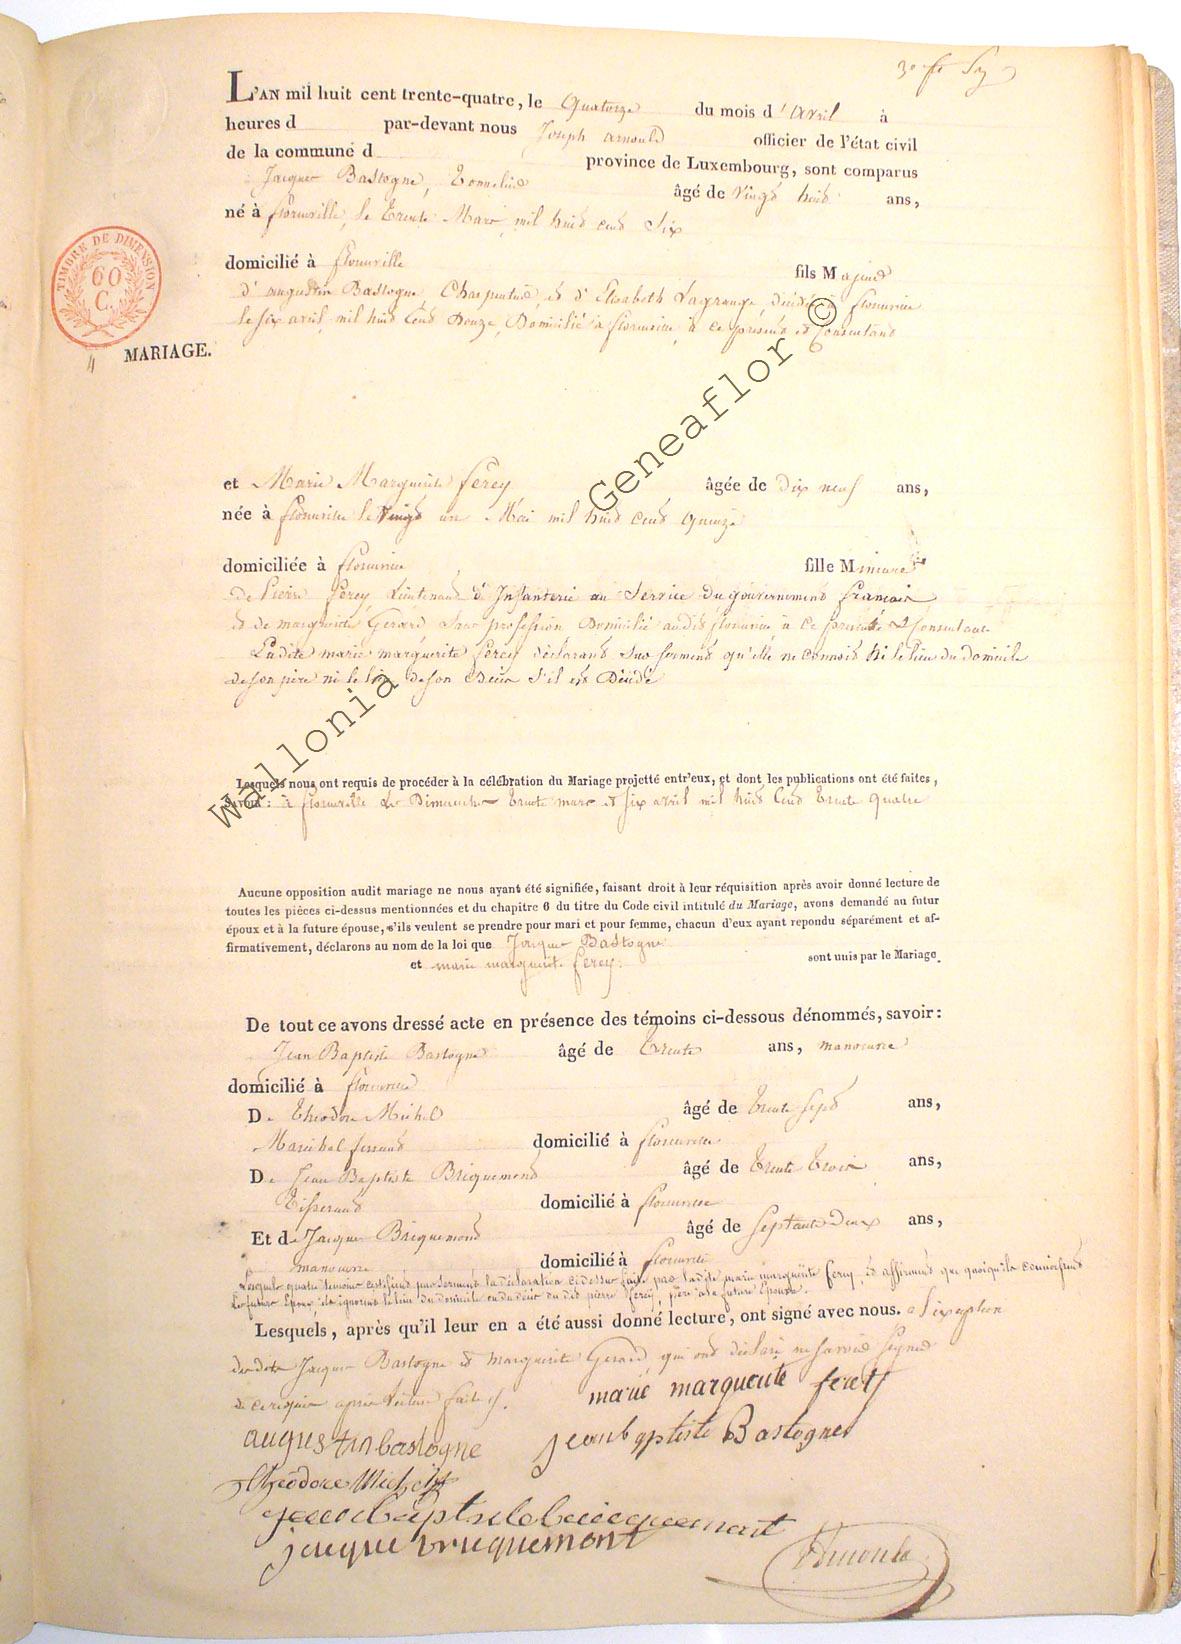 L'AN mil huit cent trente-quatre, le quatorze du mois d'avril à
heures d par-devant nous Joseph arnould officier de l'état civil
de la commune d province de Luxembourg, sont comparus
Jacques Bastogne, Tonnelier âgé de vingt huit ans,
né à florenville, le trente Mars mil huit cent Six
TIMBRE DE DIMENSION
60
C.
4 MARIAGE.
domicilié à florenville fils Majeur
d'augustin Bastogne, Charpentier, et d'Elisabeth Lagrange, décédée à florenville
le six avril mil huit Cent Douze, Domicilié à florenville, à ce présent et Consentant
et Marie Marguerite ferey âgée de dix neuf ans,
née à florenville le vingt un Mai mil huit cent quinze
domiciliée à florenville fille Mineure
de Pierre ferey Lieutenant d'Infanterie au Service du gouvernement francais
et de marguerite Gerard Sans profession Domicilié audit florenville à ce présente & Consentante
Ladite marie marguerite ferey déclarant sous serment qu'elle ne connoit ni le lieu du domicile
de son père ni le lieu de son Décès s'il est Décédé
Lesquels nous ont requis de procéder à la célébration du Mariage projetté entr'eux, et dont les publications ont été faites,
savoir : à florenville les Dimanches trente mars et six avril mil huit Cent trente quatre
Aucune opposition audit mariage ne nous ayant été signifiée, faisant droit à leur réquisition après avoir donné lecture de
toutes les pièces ci-dessus mentionnées et du chapitre 6 du titre du Code civil intitulé du Mariage, avons demandé au futur
époux et à la future épouse, s'ils veulent se prendre pour mari et pour femme, chacun d'eux ayant repondu séparément et af-
firmativement, déclarons au nom de la loi que Jacques Bastogne
et marie marguerite ferey. sont unis par le Mariage.
De tout ce avons dressé acte en présence des témoins ci-dessous dénommés, savoir :
Jean Baptiste Bastogne âgé de trente ans, manoeuvre
domicilié à florenville
De théodore Michel âgé de trente sept ans,
Maréchal ferrant domicilié à florenville
De Jean Baptiste Briquemont âgé de trente trois ans,
Tisserand domicilié à florenville
Et de Jacques Briquemont âgé de septante Deux ans,
manoeuvre domicilié à florenville
Lesquels quatre témoins certifient par serment la déclaration ci dessus faite par ladite marie marguerite ferey, et affirment que quoiqu'ils connoissent
les futurs Epoux, ils ignorent le lieu du domicile ou du décès du dit pierre ferey, père de la future Epouse.
Lesquels, après qu'il leur en a été aussi donné lecture, ont signé avec nous. a l'exception
des dits Jacques Bastogne et Marguerite Gerard, qui ont déclaré ne savoir signer
de ce requis après lecture faite
marie marguerite ferey
augustin bastogne
jean baptiste Bastogne
théodore Michel
jacque briquemont
Arnould
Wallonia Geneaflor ©